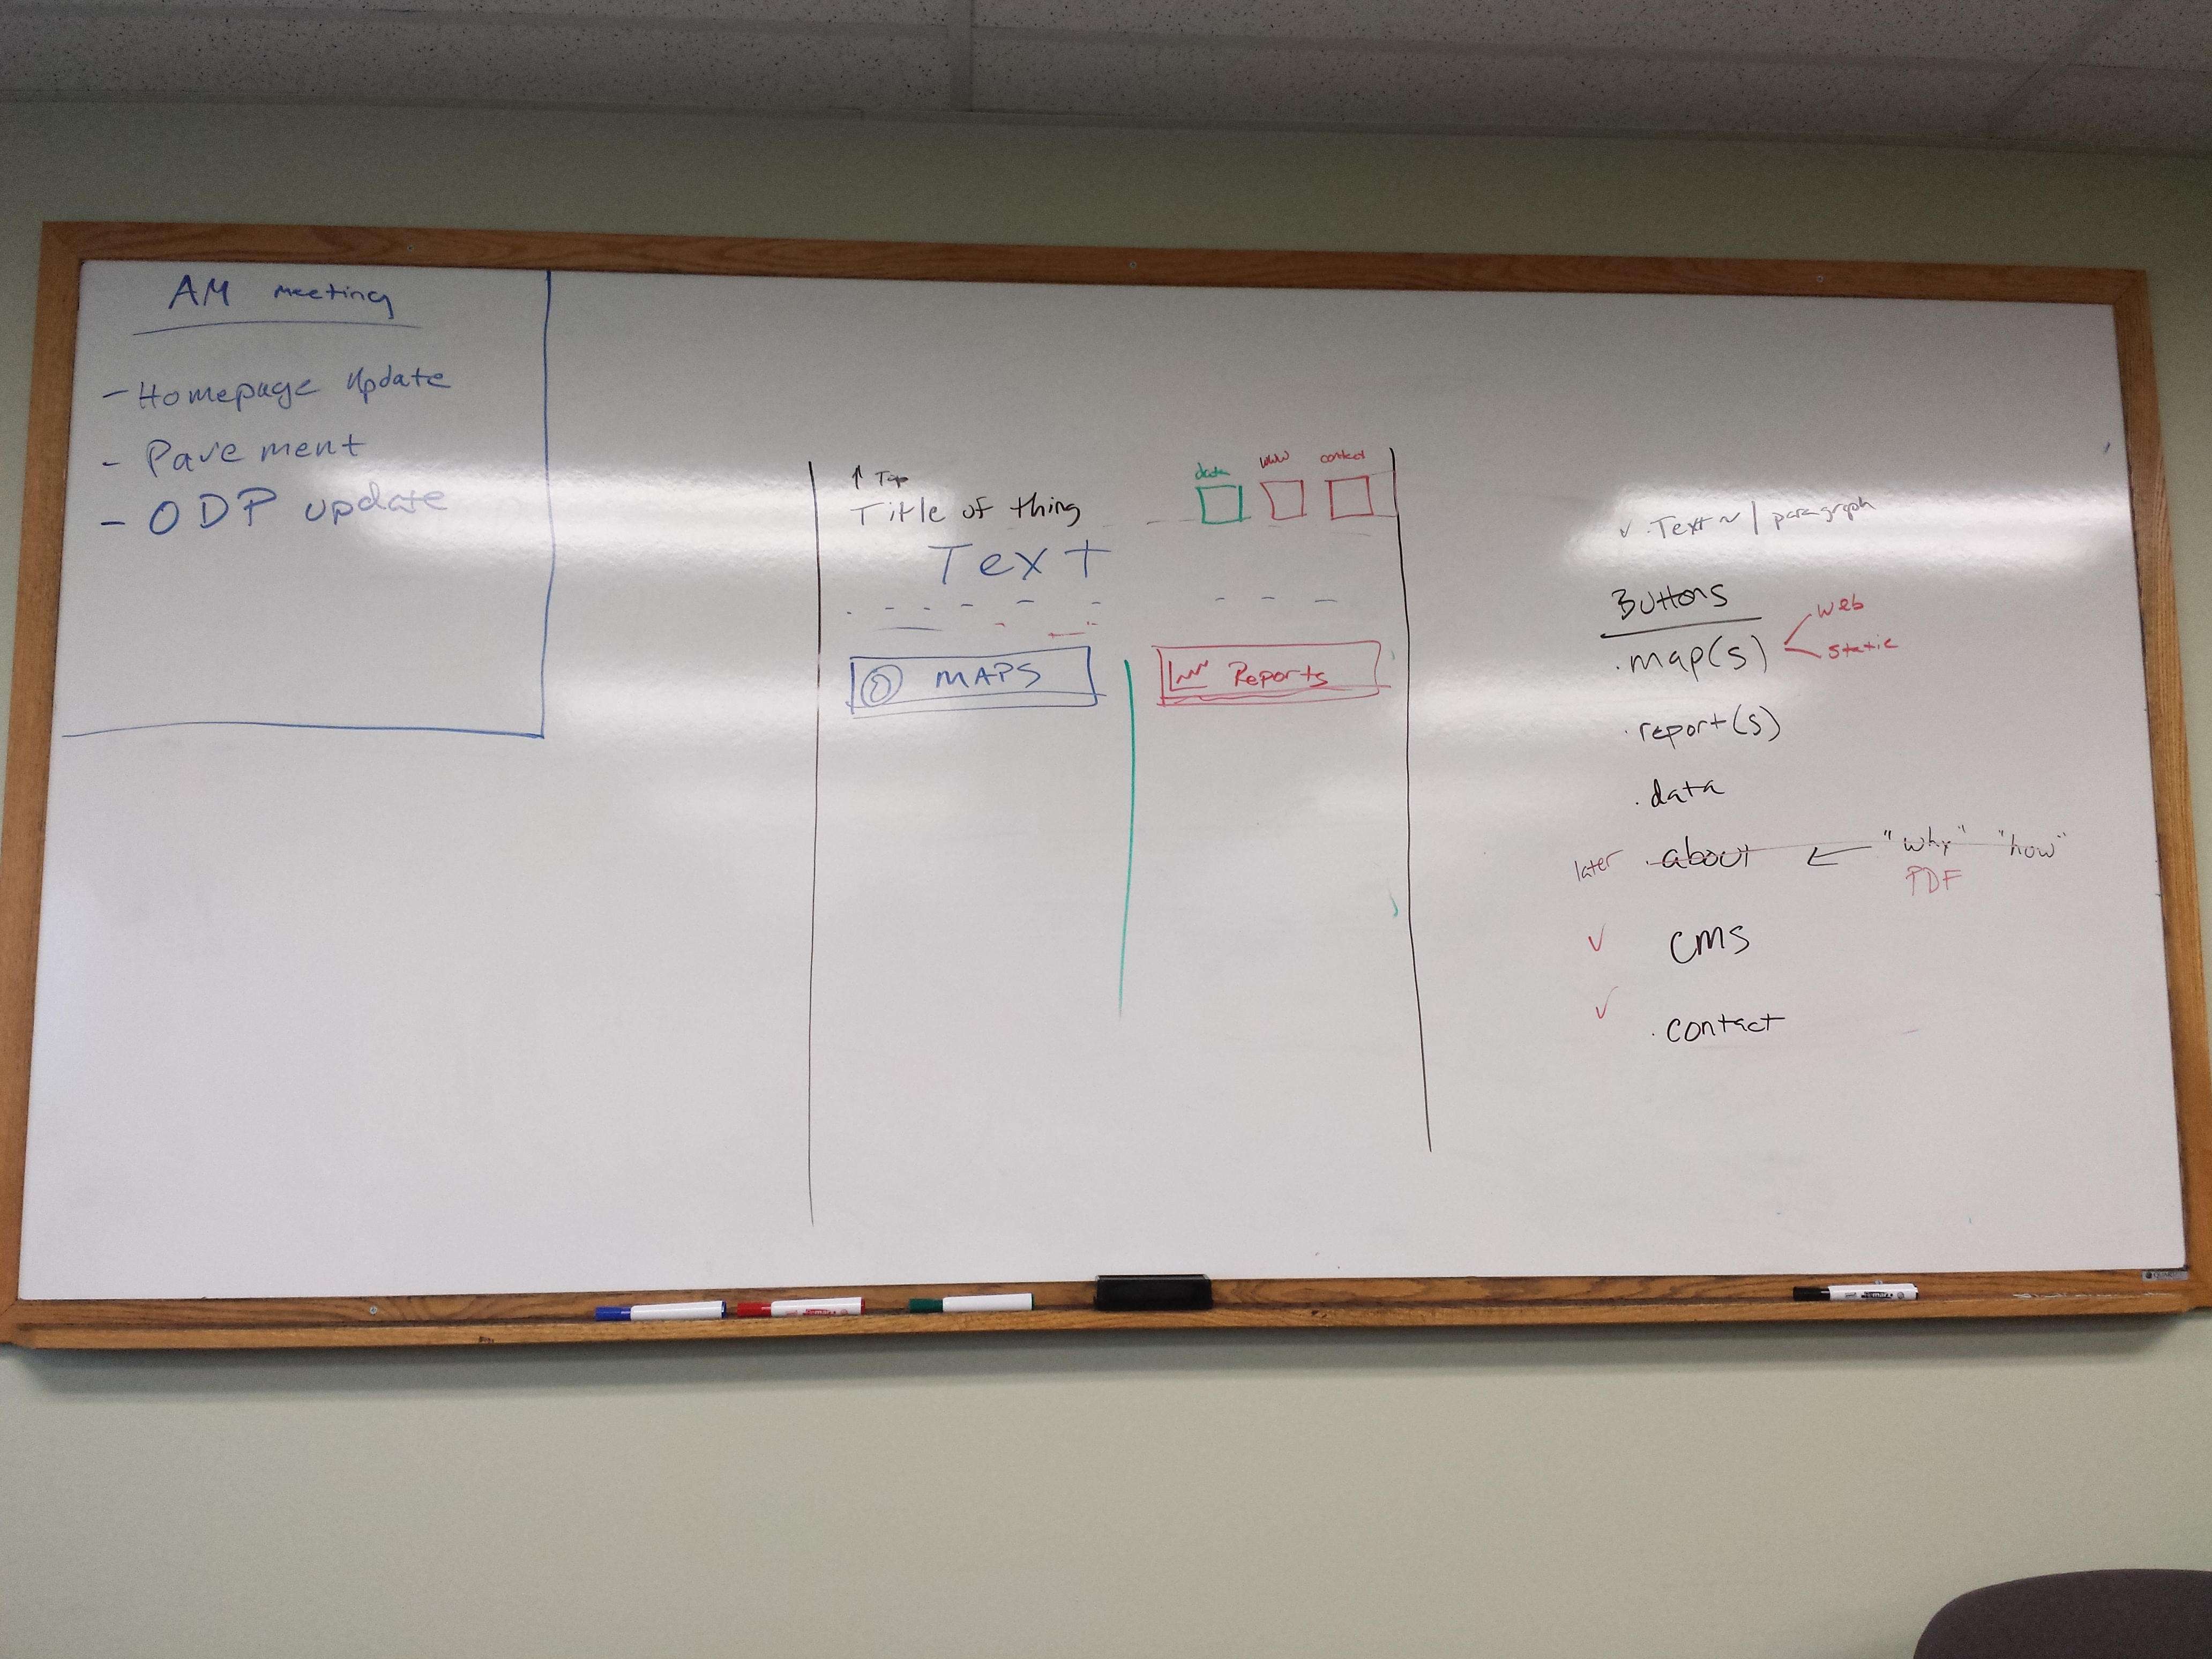 AM meeting
- Homepage update
- Pavement
- ODP update
↑ Top
Title of thing
data
www
contact
Text
MAPS
Reports
✓ . Text ~ 1 paragraph
Buttons
. map(s)
web
static
. report(s)
. data
later . about ← "why" "how"
PDF
✓ CMS
✓ . contact